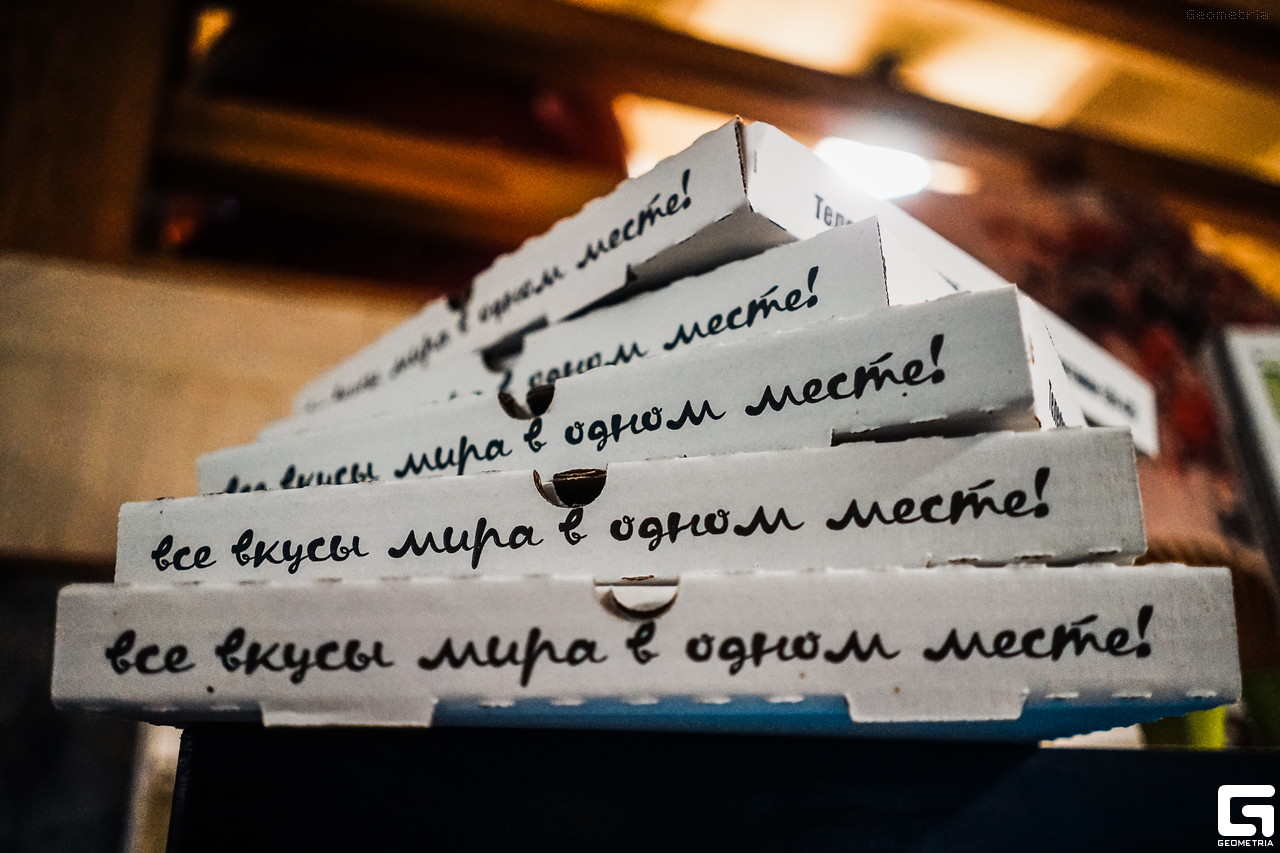 Geometria
все вкусы мира в одном месте!
в одном месте!
все вкусы мира в одном месте!
все вкусы мира в одном месте!
все вкусы мира в одном месте!
GEOMETRIA